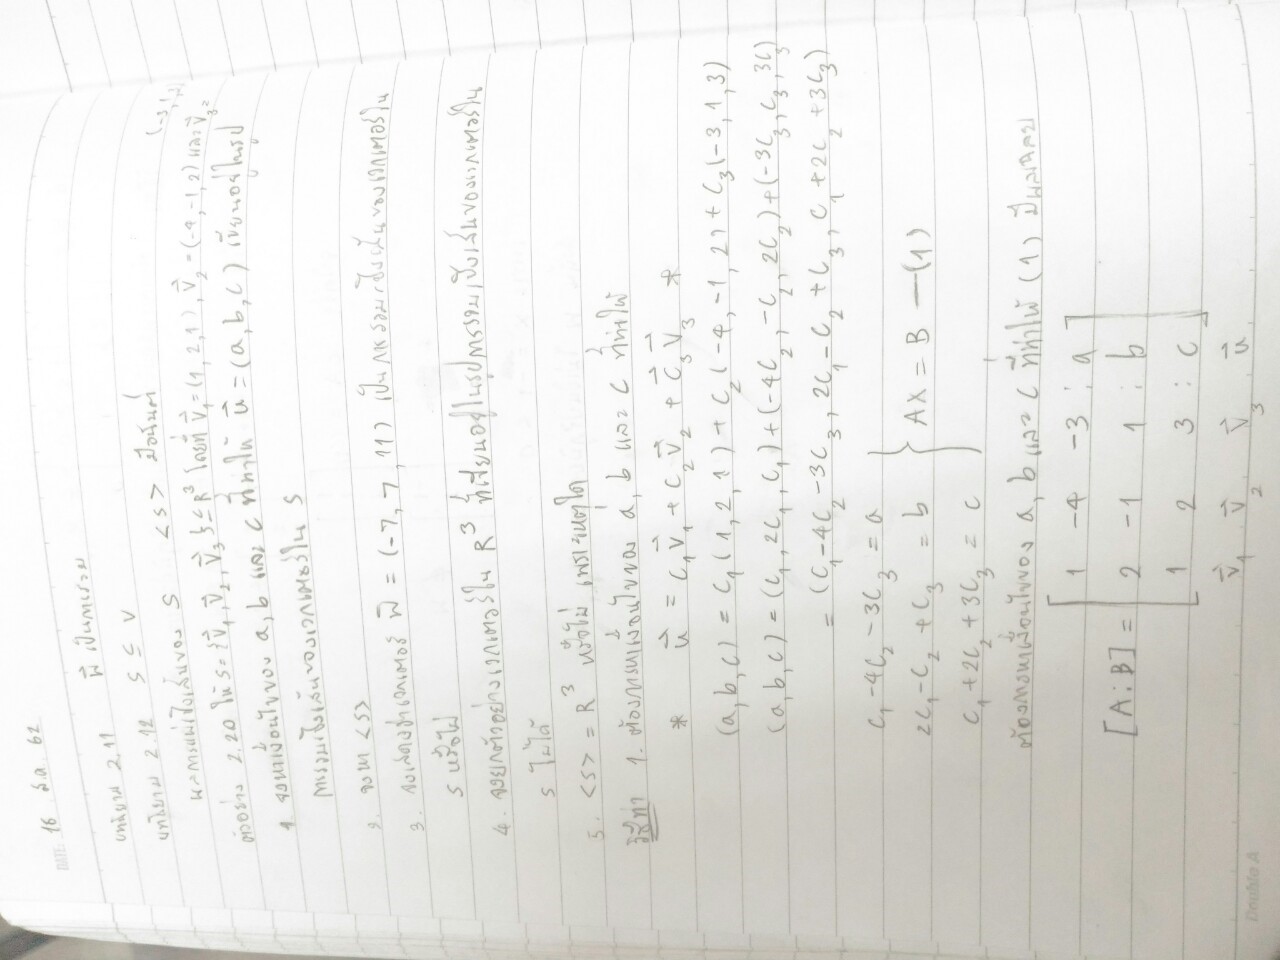 DATE: 16 ส.ค 62
บทนิยาม 2.11 พี เป็นการรวม
บทนิยาม 2.12 S ⊆ V
ผลการแผ่เชิงเส้นของ S <S> มีอนันต์
(-3,1,3)
ตัวอย่าง 2.20 ให้ S = {v⃗₁, v⃗₂, v⃗₃} ⊆ R³ โดยที่ v⃗₁ = (1, 2, 1), v⃗₂ = (-4, -1, 2) และ v⃗₃ =
1. จงหาเงื่อนไขของ a, b และ c ที่ทำให้ u⃗ = (a, b, c) เขียนอยู่ในรูป
การรวมเชิงเส้นของเวกเตอร์ใน S
2. จงหา <S>
3. จงแสดงว่าเวกเตอร์ = (-7, 7, 11) เป็นการรวมเชิงเส้นของเวกเตอร์ใน
S หรือไม่
4. จงยกตัวอย่างเวกเตอร์ใน R³ ที่เขียนอยู่ในรูปการรวมเชิงเส้นของเวกเตอร์ใน
S ไม่ได้
5. <S> = R³ หรือไม่ เพราะเหตุใด
วิธีทำ 1. ต้องการหาเงื่อนไขของ a, b และ c ที่ทำให้
* u⃗ = c₁v⃗₁ + c₂v⃗₂ + c⃗₃v⃗₃ *
(a, b, c) = c₁(1, 2, 1) + c₂(-4, -1, 2) + c₃(-3, 1, 3)
(a, b, c) = (c₁, 2c₁, c₁) + (-4c₂, -c₂, 2c₂) + (-3c₃, c₃, 3c₃)
= (c₁ - 4c₂ - 3c₃, 2c₁ - c₂ + c₃, c₁ + 2c₂ + 3c₃)
c₁ - 4c₂ - 3c₃ = a
2c₁ - c₂ + c₃ = b } AX = B —(1)
c₁ + 2c₂ + 3c₃ = c
ต้องการหาเงื่อนไขของ a, b และ c ที่ทำให้ (1) มีผลเฉลย
1 -4 -3 : a
[A : B] = 2 -1 1 : b
1 2 3 : c
v⃗₁ v⃗₂ v⃗₃ u⃗
Double A